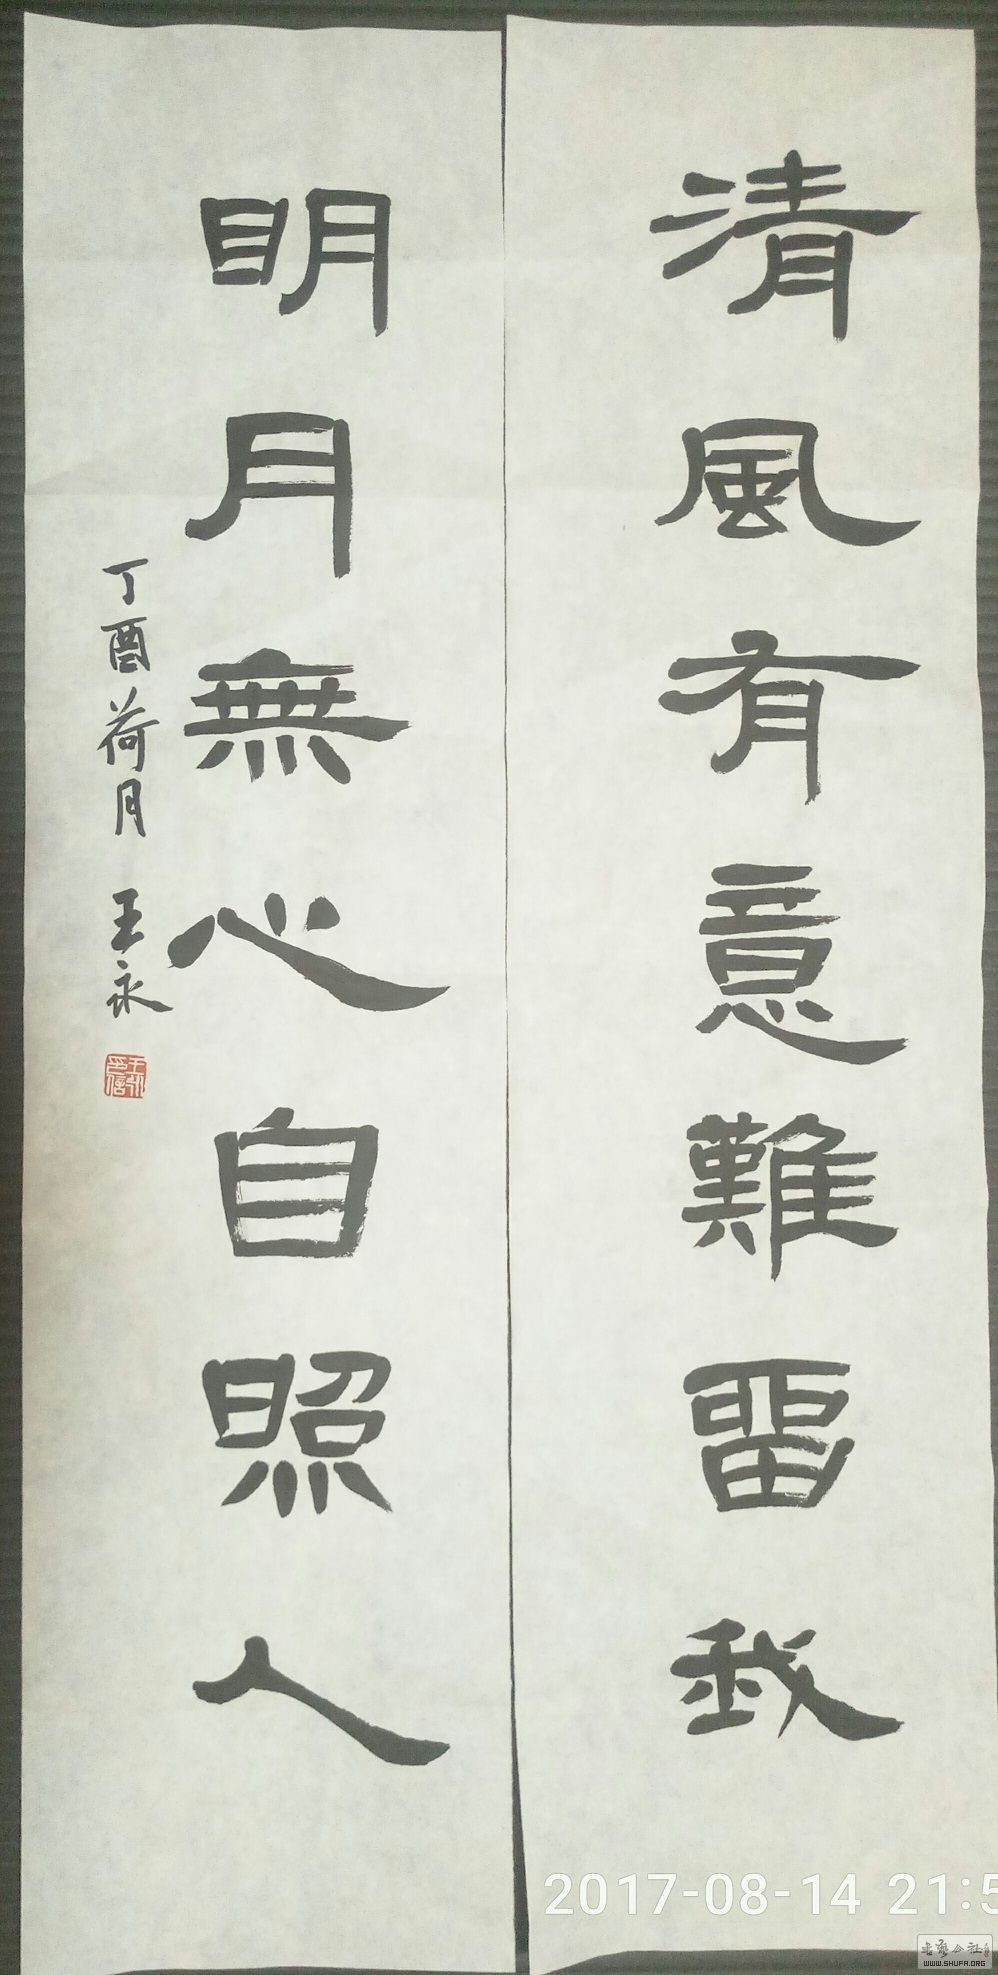 清風有意難留我
明月無心自照人
丁酉荷月 王永
2017-08-14 21:5
WWW.SHUFA.ORG